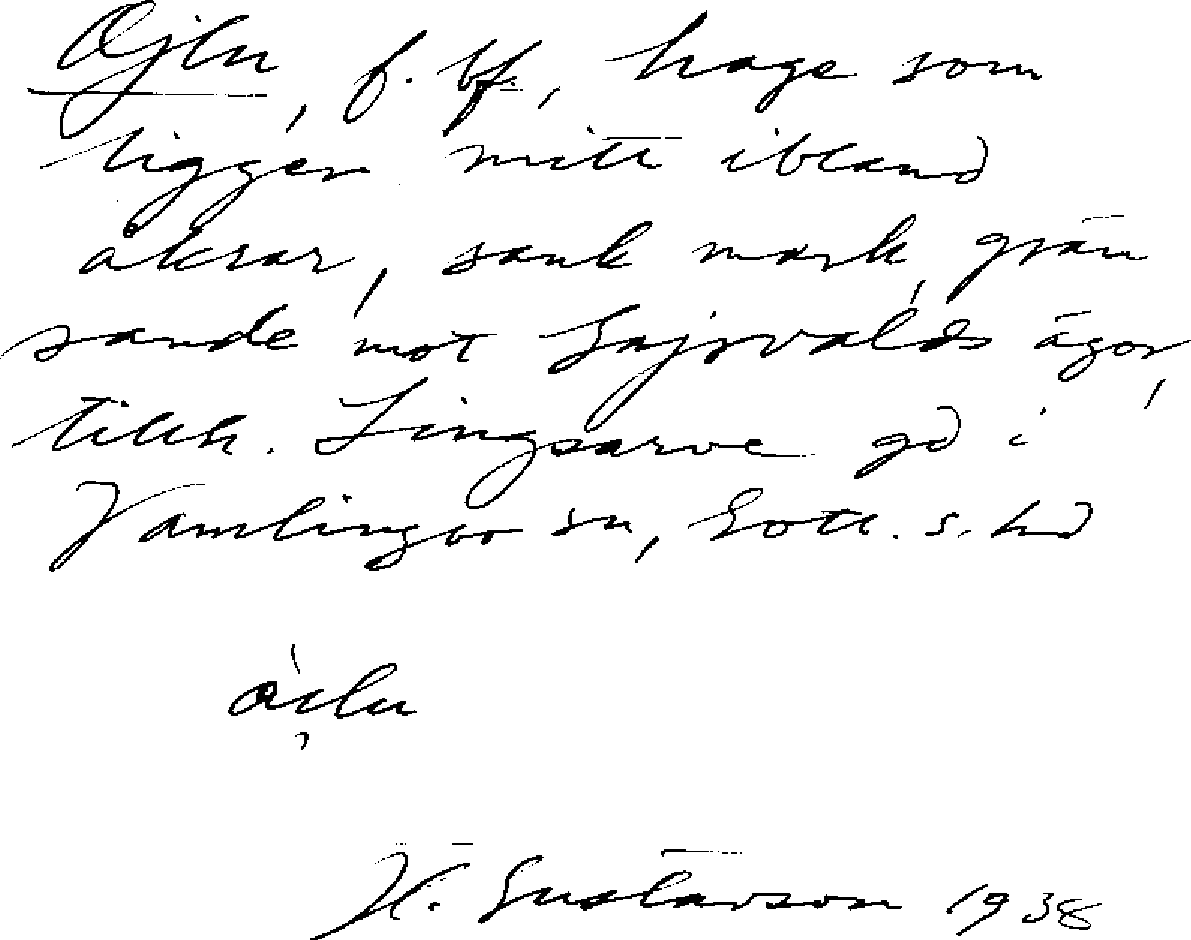 Öjlu, f. bf., hage som
ligger mitt ibland
åkrar, sank mark, grän
sande mot Gajsvalds ägor,
tillh. Lingsarve gd i
Vamlingbo sn, Gotl. s. hd
H. Gustavson 1938